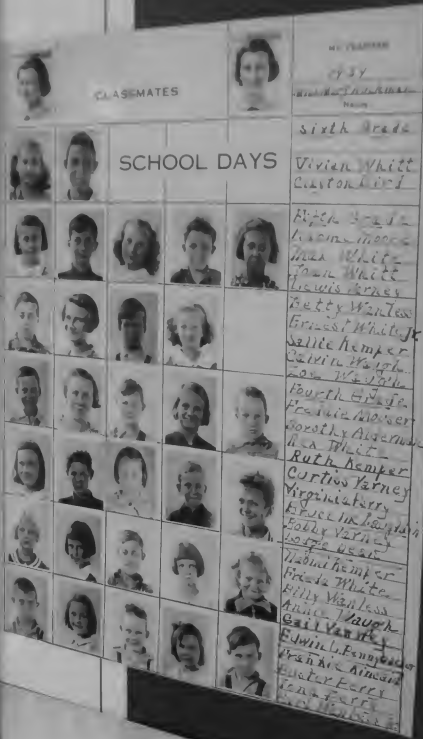 CLASSMATES
SCHOOL DAYS
MY TEACHER
1934
Sixth Grade
Vivian Whitt
Clayton Bird
Fifth Grade
Moore
Max White
Jean Whitt
Lewis Varney
Betty Wanless
Ernest White, Jr.
Sallie Kemper
Calvin Waugh
Zoe Waugh
Fourth Grade
Freddie Mosser
Dorothy
Rea Whitt
Ruth Kemper
Curtiss Varney
Virginia Perry
Bruce
Bobby Varney
Naomi Kemper
Frieda White
Billy Wanless
Annie Waugh
Gail Varney
Edwin
Frankie Kincaid
Perry
Perry